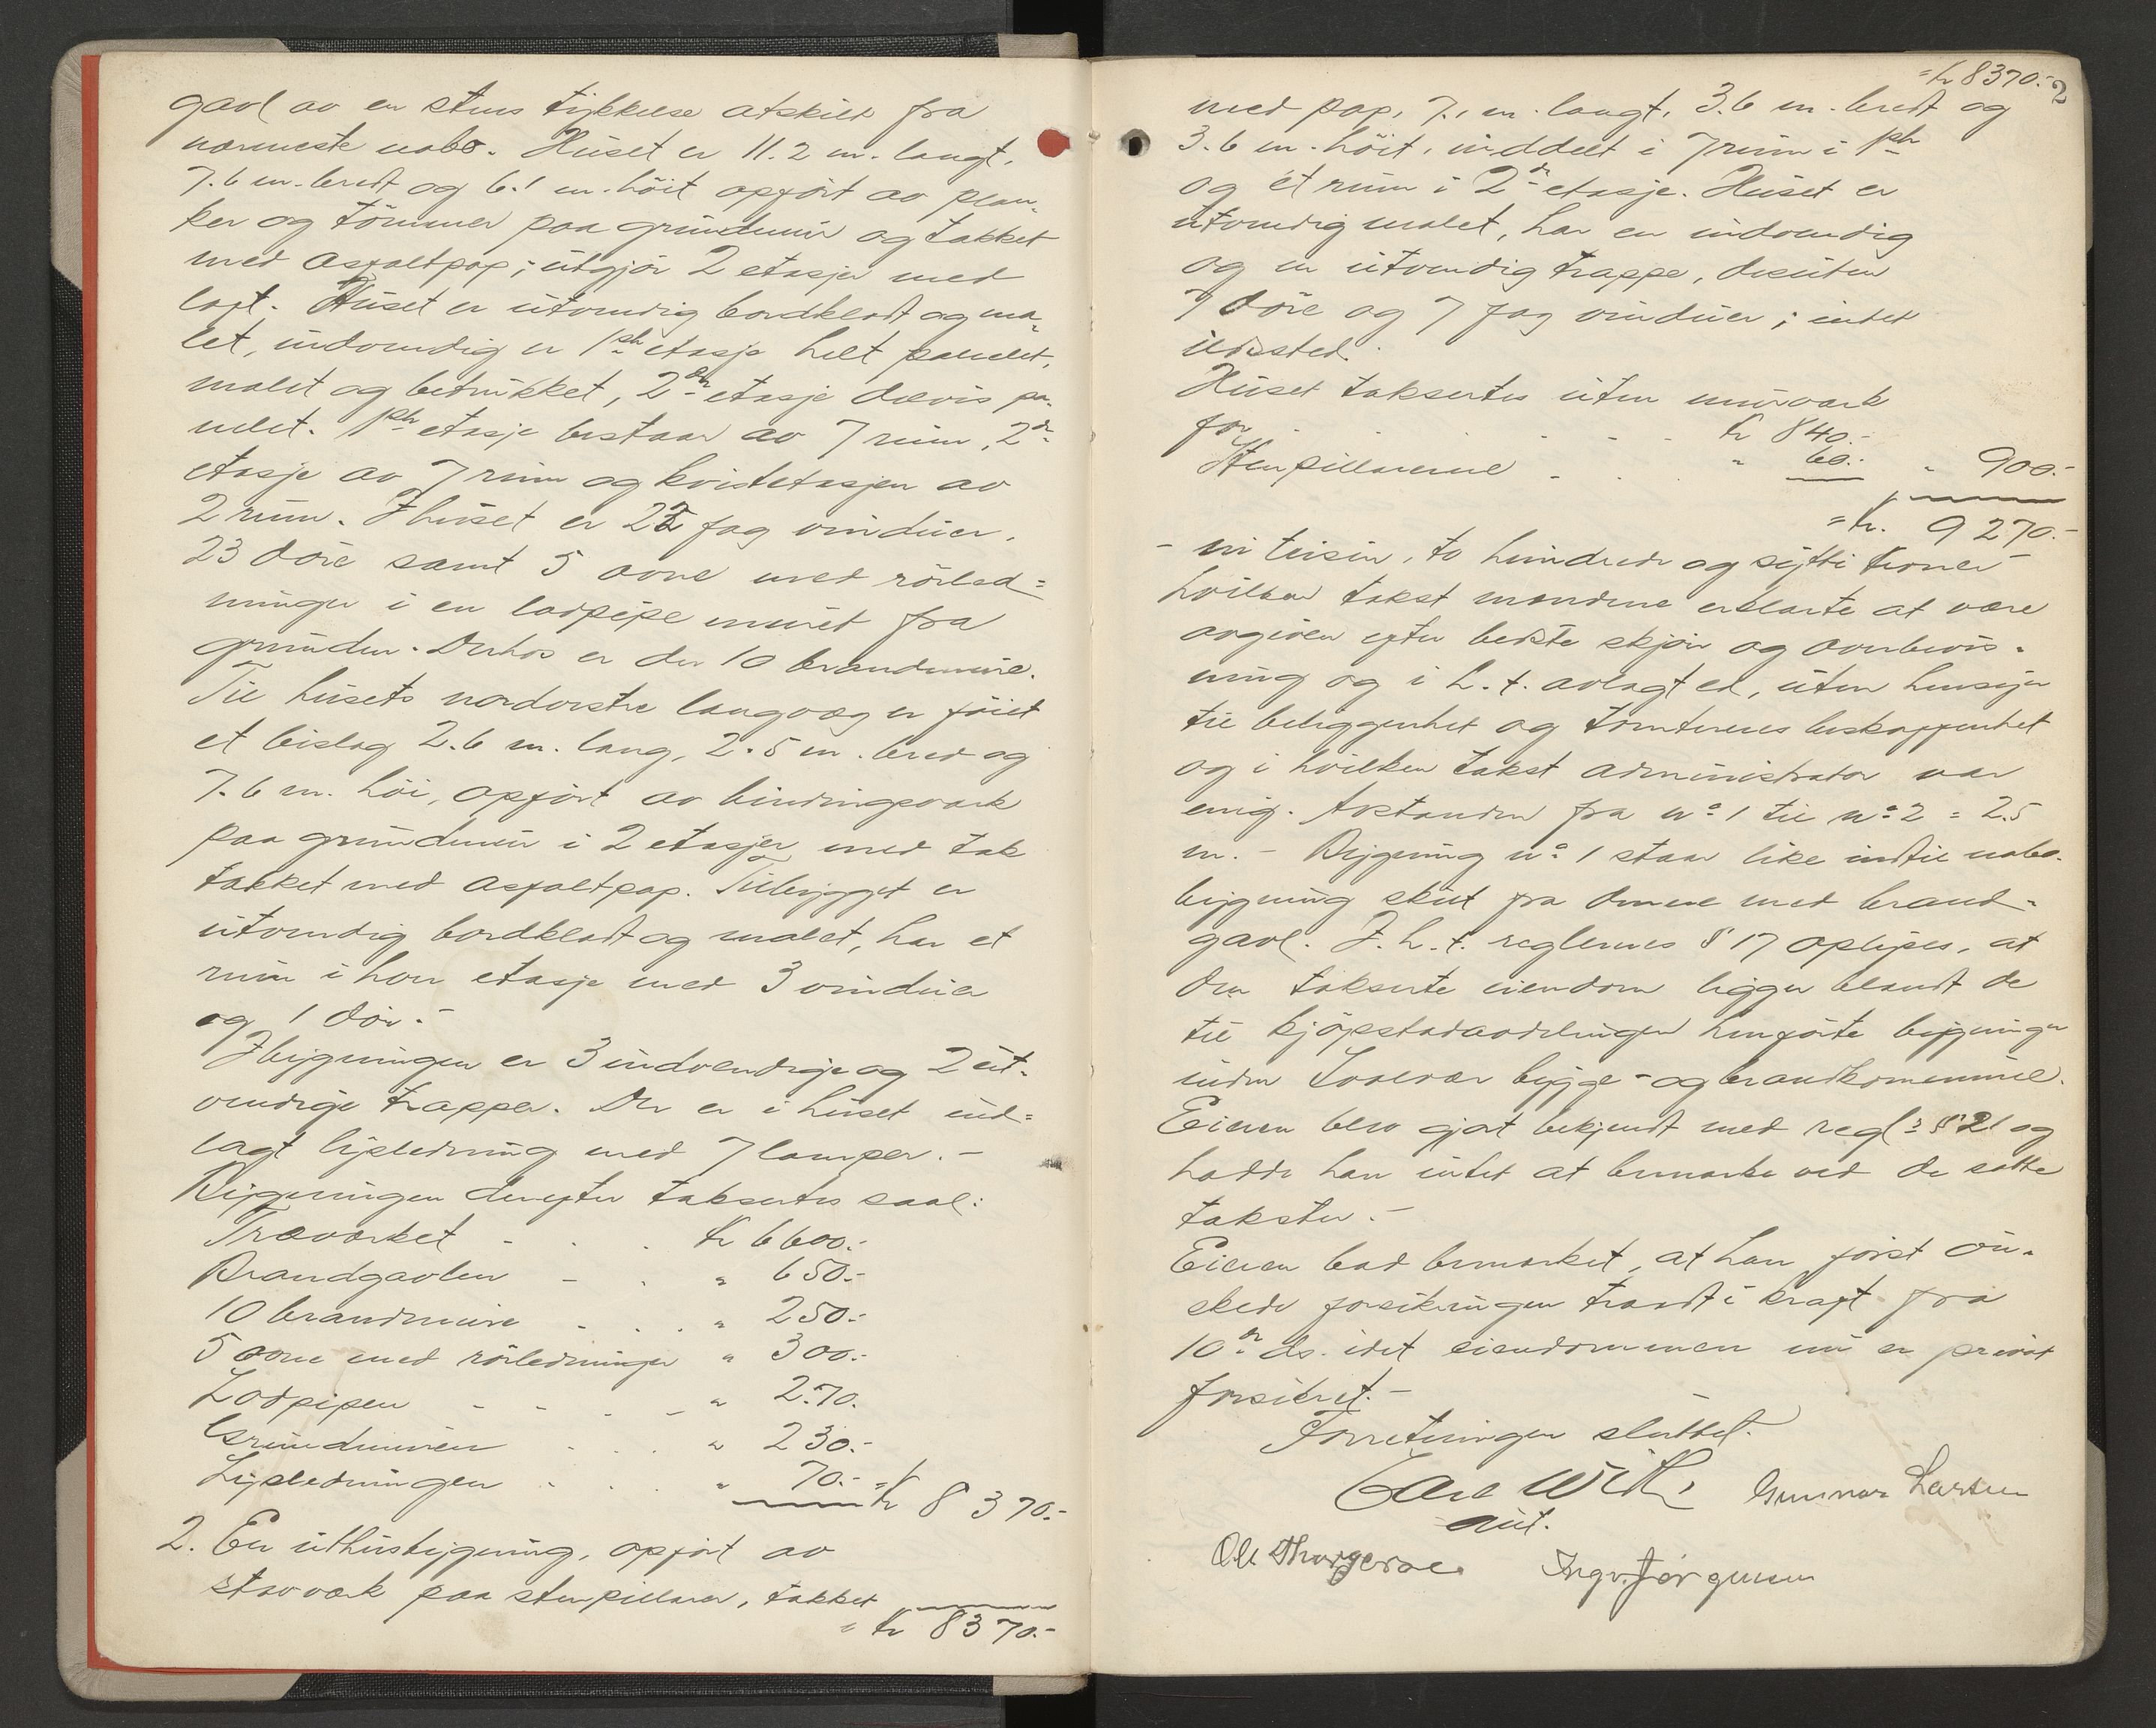 gavl av en stens tykkelse atskilt fra
nærmeste nabo. Huset er 11.2 m. langt,
7.6 m. bredt og 6.1 m. höit opfört av plan-
ker og tömmer paa grundmur og tækket
med asfaltpap; utgjör 2 etasjer med
loft. Huset er utvendig bordklædt og ma-
let, indvendig er 1ste etasje helt panelet,
malet og betrukket, 2den etasje delvis pa-
nelet. 1ste etasje bestaar av 7 rum, 2den
etasje av 7 rum og kvistetasjen av
2 rum. I huset er 22 fag vinduer,
23 döre samt 5 ovne med rörled=
ninger i en lodpipe muret fra
grunden. Derhos er der 10 brandmure.
Til husets nordvestre langvæg er föiet
et bislag 2.6 m. lang, 2.5 m. bred og
7.6 m. höi, opfört av bindingsverk
paa grundmur i 2 etasjer med tak
tækket med asfaltpap. Tilbygget er
utvendig bordklædt og malet, har et
rum i hver etasje med 3 vinduer
og 1 dör.-
I bygningen er 3 indvendige og 2 ut-
vendige trapper. Der er i huset ind=
lagt lysledning med 7 lamper.-
Bygningen derefter taksertes saal:
Træverket - . . Kr 6600.-
Brandgavlen - . " 650.-
10 brandmure . . . " 250.-
5 ovne med rörledninger " 300.-
Lodpipen - - - - " 270.
Grundmuren . . . " 230.-
Lysledningen . . . " 70.- = Kr 8370.-
2. En uthusbygning, opfört av
stavverk paa stenpillarer, tækket
= Kr 8370.-
= Kr 8370.- 2
med pap, 7.1 m. langt, 3.6 m. bredt og
3.6 m. höit, inddelt i 7 rum i 1ste
og et rum i 2den etasje. Huset er
utvendig malet, har en indvendig
og en utvendig trappe, desuten
7 döre og 7 fag vinduer; intet
ildsted.
Huset taksertes uten murverk
for - - - - Kr 840.-
Stenpillarerne - . . " 60.- " 900.-
= Kr. 9270.-
- ni tusin, to hundrede og sytti kroner -
hvilken takst mændene erklærte at være
avgiven efter bedste skjön og overbevis-
ning og i h.t. avlagt ed, uten hensyn
til beliggenhet og tomtenes beskaffenhet
og i hvilken takst administrator var
enig. Avstanden fra no 1 til no 2 = 2.5
m. - Bygning no 1 staar like indtil nabo-
bygning skilt fra denne med brand-
gavl. I h.t. reglernes § 17 oplyses, at
den takserte eiendom ligger blandt de
til kjöpstadavdelingen henförte bygninger
inden Svolvær bygge- og brandkommune.
Eieren blev gjort bekjendt med regl: § 21 og
hadde han intet at bemerke ved de satte
takster.-
Eieren bad bemerket, at han först ön-
skede forsikringen traadt i kraft fra
10de ds. idet eiendommen nu er privat
forsikret.-
Forretningen sluttet.
Carl With Gunnar Larsen
aut.
Ole Thorgersen Ingv. Jörgensen